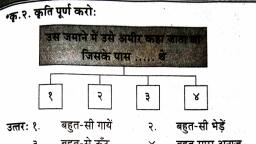 *कृ.२. कृति पूर्ण करो:
उस जमाने में उसे अमीर कहा जाता था
जिसके पास ..... थे
१ २ ३ ४
उत्तर: १. बहुत-सी गायें २. बहुत-सी भेड़ें
३. बहुत-से ऊँट ४.